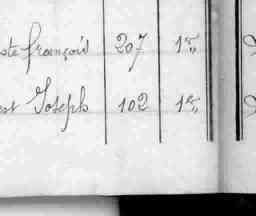 ste françois 207 15,,
est Joseph 102 15,,